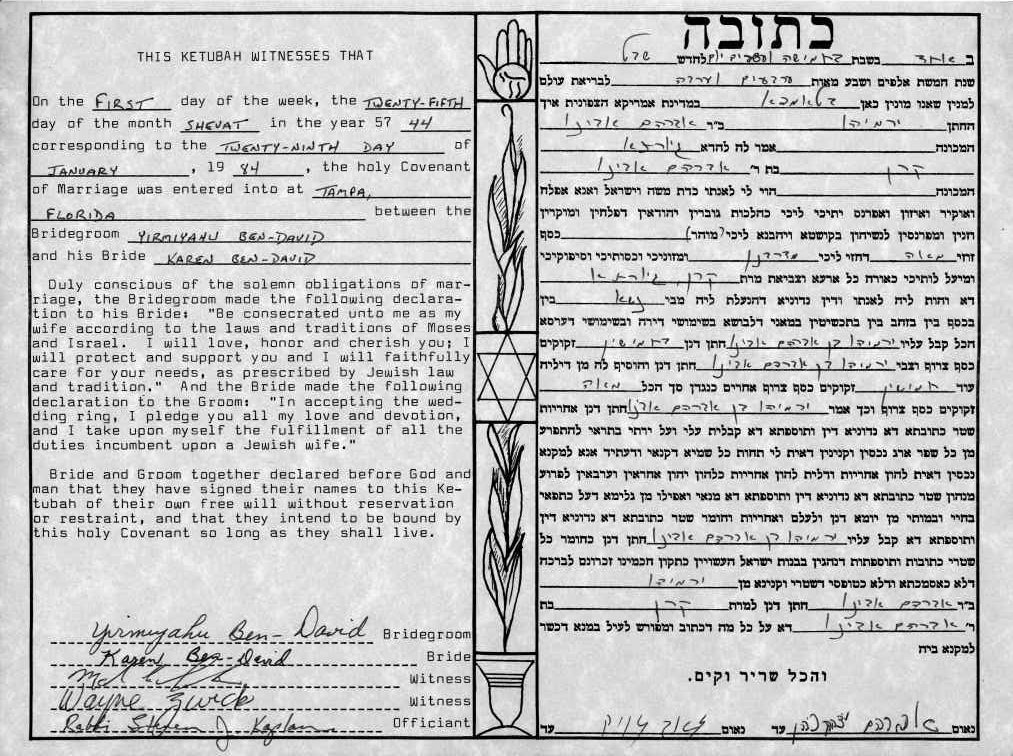 THIS KETUBAH WITNESSES THAT
On the FIRST day of the week, the TWENTY-FIFTH
day of the month SHEVAT in the year 57 44
corresponding to the TWENTY-NINTH DAY of
JANUARY, 19 84, the holy Covenant
of Marriage was entered into at TAMPA,
FLORIDA between the
Bridegroom YIRMIYAHU BEN-DAVID
and his Bride KAREN BEN-DAVID
Duly conscious of the solemn obligations of mar-
riage, the Bridegroom made the following declara-
tion to his Bride: "Be consecrated unto me as my
wife according to the laws and traditions of Moses
and Israel. I will love, honor and cherish you; I
will protect and support you and I will faithfully
care for your needs, as prescribed by Jewish law
and tradition." And the Bride made the following
declaration to the Groom: "In accepting the wed-
ding ring, I pledge you all my love and devotion,
and I take upon myself the fulfillment of all the
duties incumbent upon a Jewish wife."
Bride and Groom together declared before God and
man that they have signed their names to this Ke-
tubah of their own free will without reservation
or restraint, and that they intend to be bound by
this holy Covenant so long as they shall live.
Yirmiyahu Ben-David Bridegroom
Karen Ben-David Bride
Witness
Wayne Zwick Witness
Rabbi Stephen J. Kaplan Officiant
כתובה
ב אחד בשבת בחמישה ועשרים יום לחדש שבט
שנת חמשת אלפים ושבע מאות וארבעה לבריאת עולם
למנין שאנו מונין כאן בטאמפא במדינת אמריקא הצפונית איך
החתן ירמיהו ב״ר אברהם אבינו
המכונה אמר לה להדא גיורתא
קרן בת ר׳ אברהם אבינו
המכונה הוי לי לאנתו כדת משה וישראל ואנא אפלח
ואוקיר ואיזון ואפרנס יתיכי ליכי כהלכות גוברין יהודאין דפלחין ומוקרין
וזנין ומפרנסין לנשיהון בקושטא ויהבנא ליכי (מוהר) כסף
זוזי מאה דחזי ליכי מדרבנן ומזוניכי וכסותיכי וסיפוקיכי
ומיעל לותיכי כאורח כל ארעא וצביאת מרת קרן גיורתא
דא והות ליה לאנתו ודין נדוניא דהנעלת ליה מבי בין
בכסף בין בזהב בין בתכשיטין במאני דלבושא בשימושי דירה ובשימושי דערסא
הכל קבל עליו ירמיהו בן אברהם אבינו חתן דנן בחמישין זקוקים
כסף צרוף וצבי ירמיהו בן אברהם אבינו חתן דנן והוסיף לה מן דיליה
עוד חמישין זקוקים כסף צרוף אחרים כנגדן סך הכל מאה
זקוקים כסף צרוף וכך אמר ירמיהו בן אברהם אבינו חתן דנן אחריות
שטר כתובתא דא נדוניא דין ותוספתא דא קבלית עלי ועל ירתי בתראי להתפרע
מן כל שפר ארג נכסין וקנינין דאית לי תחות כל שמיא דקנאי ודעתיד אנא למקנא
נכסין דאית להון אחריות ודלית להון אחריות כלהון יהון אחראין וערבאין לפרוע
מנהון שטר כתובתא דא נדוניא דין ותוספתא דא מנאי ואפילו מן גלימא דעל כתפאי
בחיי ובמותי מן יומא דנן ולעלם ואחריות וחומר שטר כתובתא דא נדוניא דין
ותוספתא דא קבל עליו ירמיהו בן אברהם אבינו חתן דנן כחומר כל
שטרי כתובות ותוספתות דנהגין בבנות ישראל העשויין כתקון חכמינו זכרונם לברכה
דלא כאסמכתא ודלא כטופסי דשטרי וקנינא מן ירמיהו
ב״ר אברהם אבינו חתן דנן למרת קרן בת
ר׳ אברהם אבינו דא על כל מה דכתוב ומפורש לעיל במנא דכשר
למקנא ביה
והכל שריר וקים.
נאום אפרהם עד נאום עד